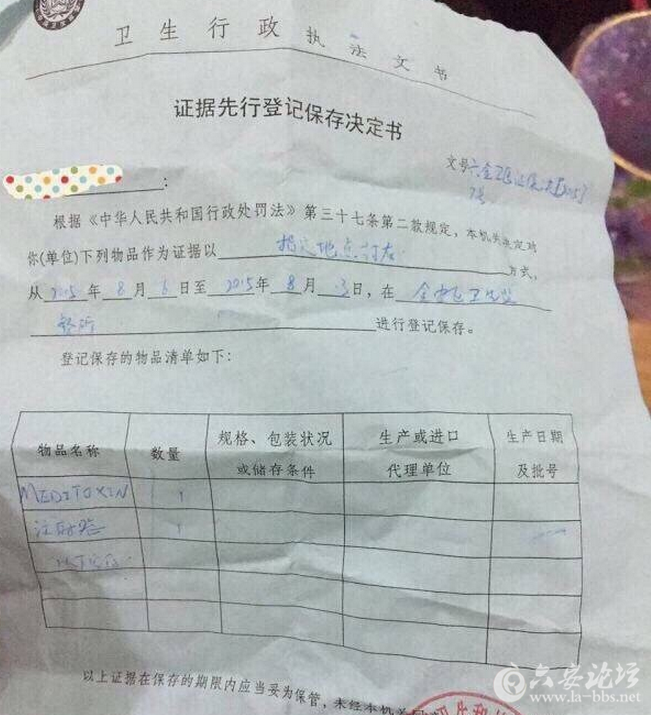 卫生行政执法文书
证据先行登记保存决定书
文号:
:
根据《中华人民共和国行政处罚法》第三十七条第二款规定,本机关决定对
你(单位)下列物品作为证据以 指定地点封存 方式,
从 2015 年 8 月 6 日至 2015 年 8 月 日,在 金安区卫生监
督所 进行登记保存。
登记保存的物品清单如下:
物品名称 数量 规格、包装状况或储存条件 生产或进口代理单位 生产日期及批号
MEDITOXIN 1
注射器 1
以下空白
以上证据在保存的期限内应当妥为保管,未经本机关
六安论坛
www.la-bbs.net